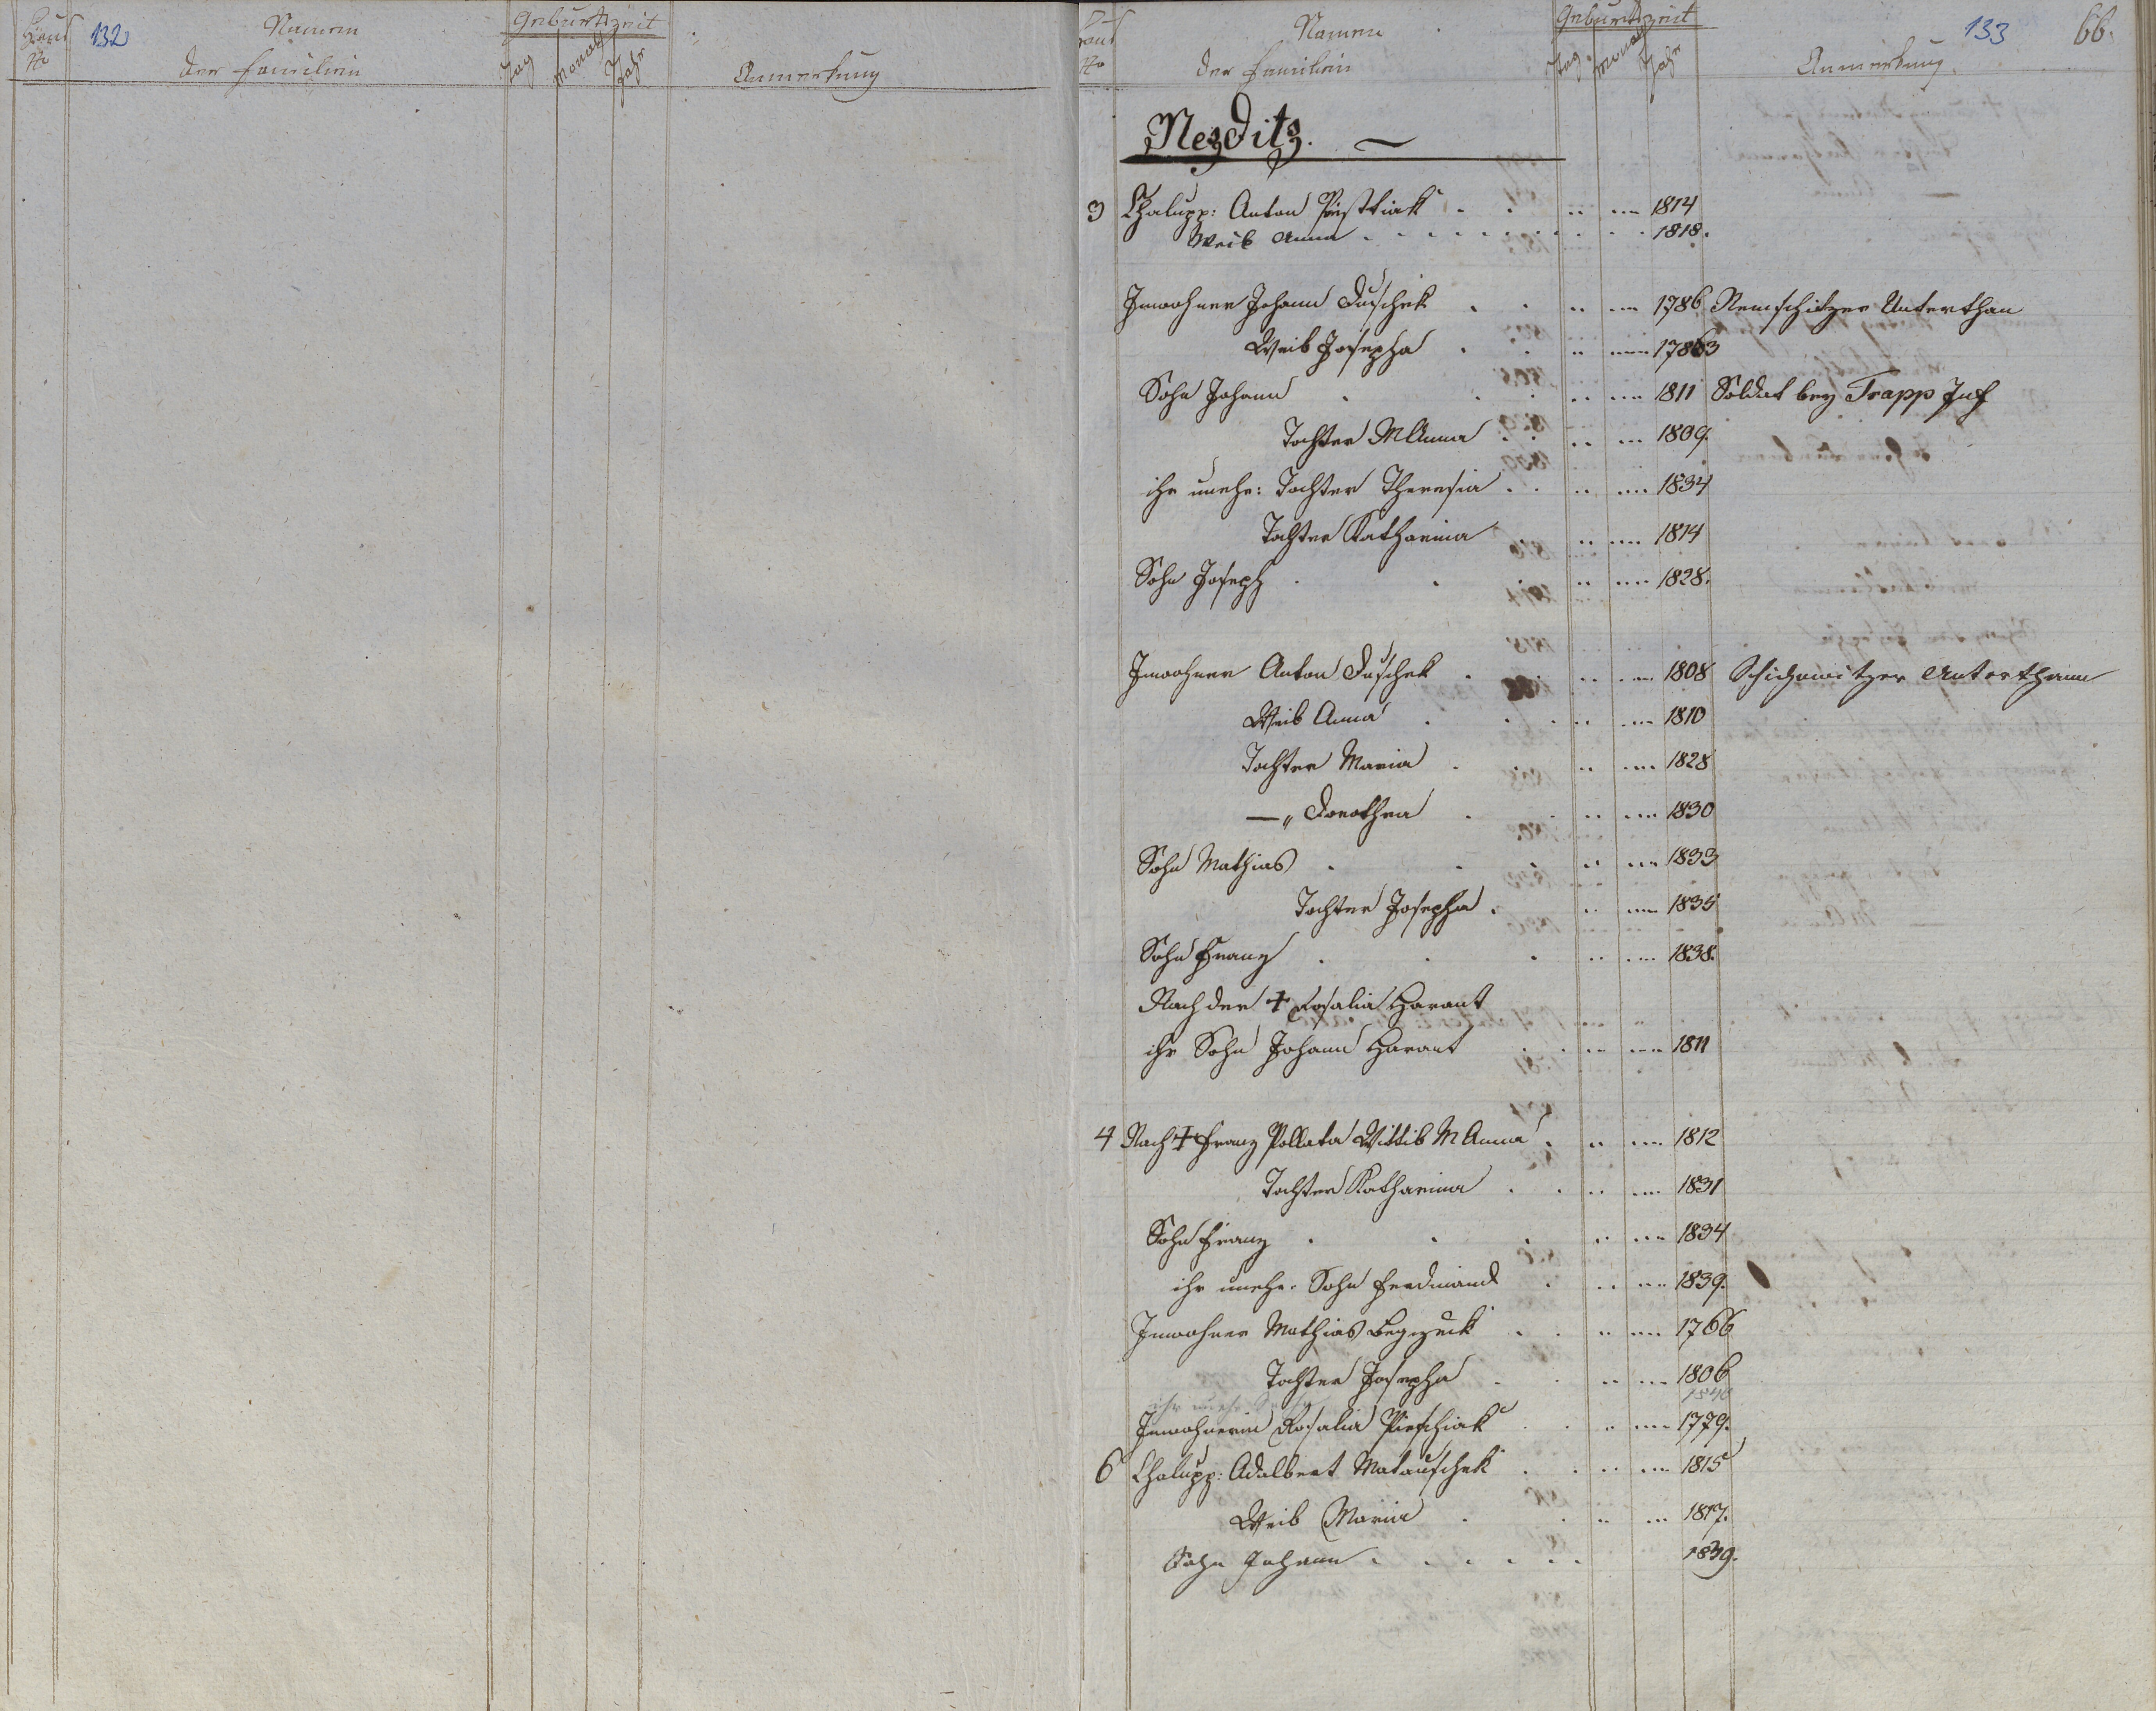 Haus Nro
132
Namen
der Familien
Geburtszeit
Tag
Monath
Jahr
Anmerkung
Haus Nro
Namen
der Familien
Geburtszeit
Tag
Monath
Jahr
133
66.
Anmerkung
Nezditz.
3 Chalupp: Anton 1814
Weib Anna 1818.
Inwohner Johann Duschek 1786 Nemschitzer Unterthan
Weib Josepha 1783
Sohn Johann 1811 Soldat bey Trapp Inf
Tochter M Anna 1809.
ihr unehe: Tochter Theresia 1834
Tochter Katharina 1814
Sohn Joseph 1828.
Inwohner Anton Duschek 1808 Schichowitzer Unterthann
Weib Anna 1810
Tochter Maria 1828
—„ Dorothea 1830
Sohn Mathias 1833
Tochter Josepha 1835
Sohn Franz 1838.
Nach der † Rosalia Harant
ihr Sohn Johann Harant 1811
4 Nach † Franz Pollata Wittib M Anna 1812
Tochter Katharina 1831
Sohn Franz 1834
ihr unehe. Sohn Ferdinand 1839.
Inwohner Mathias 1766
Tochter Josepha 1806
ihr unehe 1840
Inwohnerin Rosalia Pieschiak 1779.
6 Chalupp: Adalbert Matauschek 1815
Weib Maria 1817.
Sohn Johann 1839.